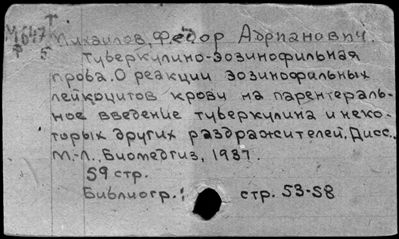 М647 т
ф 5
Михайлов, Федор Адрианович.
Туберкулино-эозинофильная
проба. О реакции эозинофильных
лейкоцитов крови на парентераль-
ное введение туберкулина и неко-
торых других раздражителей. Дисс.
М.-Л., Биомедгиз, 1937.
59 стр.
Библиогр.: стр. 53-58